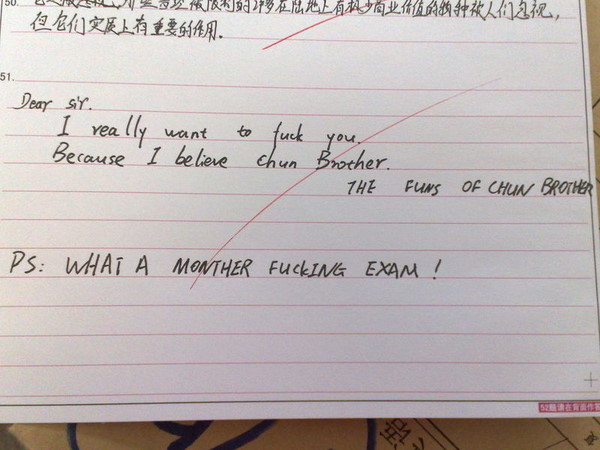 50.
但它们实际上有重要的作用.
51.
Dear sir.
I really want to fuck you.
Because I believe chun Brother.
THE FUNS OF CHUN BROTHER
PS: WHAT A MONTHER FUCKING EXAM !
52题请在背面作答